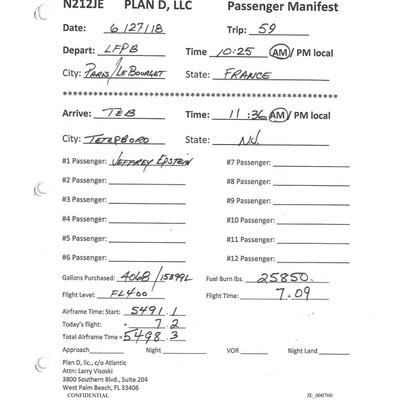 N212JE PLAN D, LLC Passenger Manifest
Date: 6/27/18 Trip: 59
Depart: LFPB Time 10:25 AM / PM local
City: PARIS/LE BOURGET State: FRANCE
Arrive: TEB Time: 11:36 AM / PM local
City: TETERBORO State: NJ.
#1 Passenger: JEFFREY EPSTEIN #7 Passenger:
#2 Passenger: #8 Passenger:
#3 Passenger: #9 Passenger:
#4 Passenger: #10 Passenger:
#5 Passenger: #11 Passenger:
#6 Passenger: #12 Passenger:
Gallons Purchased: 4068/15399L Fuel Burn lbs. 25850.
Flight Level: FL400 Flight Time: 7.09
Airframe Time: Start: 5491.1
Today's flight: + 7.2
Total Airframe Time: = 5498.3
Approach Night VOR Night Land
Plan D, llc., c/o Atlantic
Attn: Larry Visoski
3800 Southern Blvd., Suite 204
West Palm Beach, FL 33406
CONFIDENTIAL JE_000760